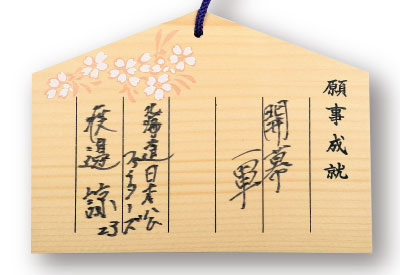 願事成就
開幕
一軍
北海道日本ハム
ファイターズ
渡邉 諒
23